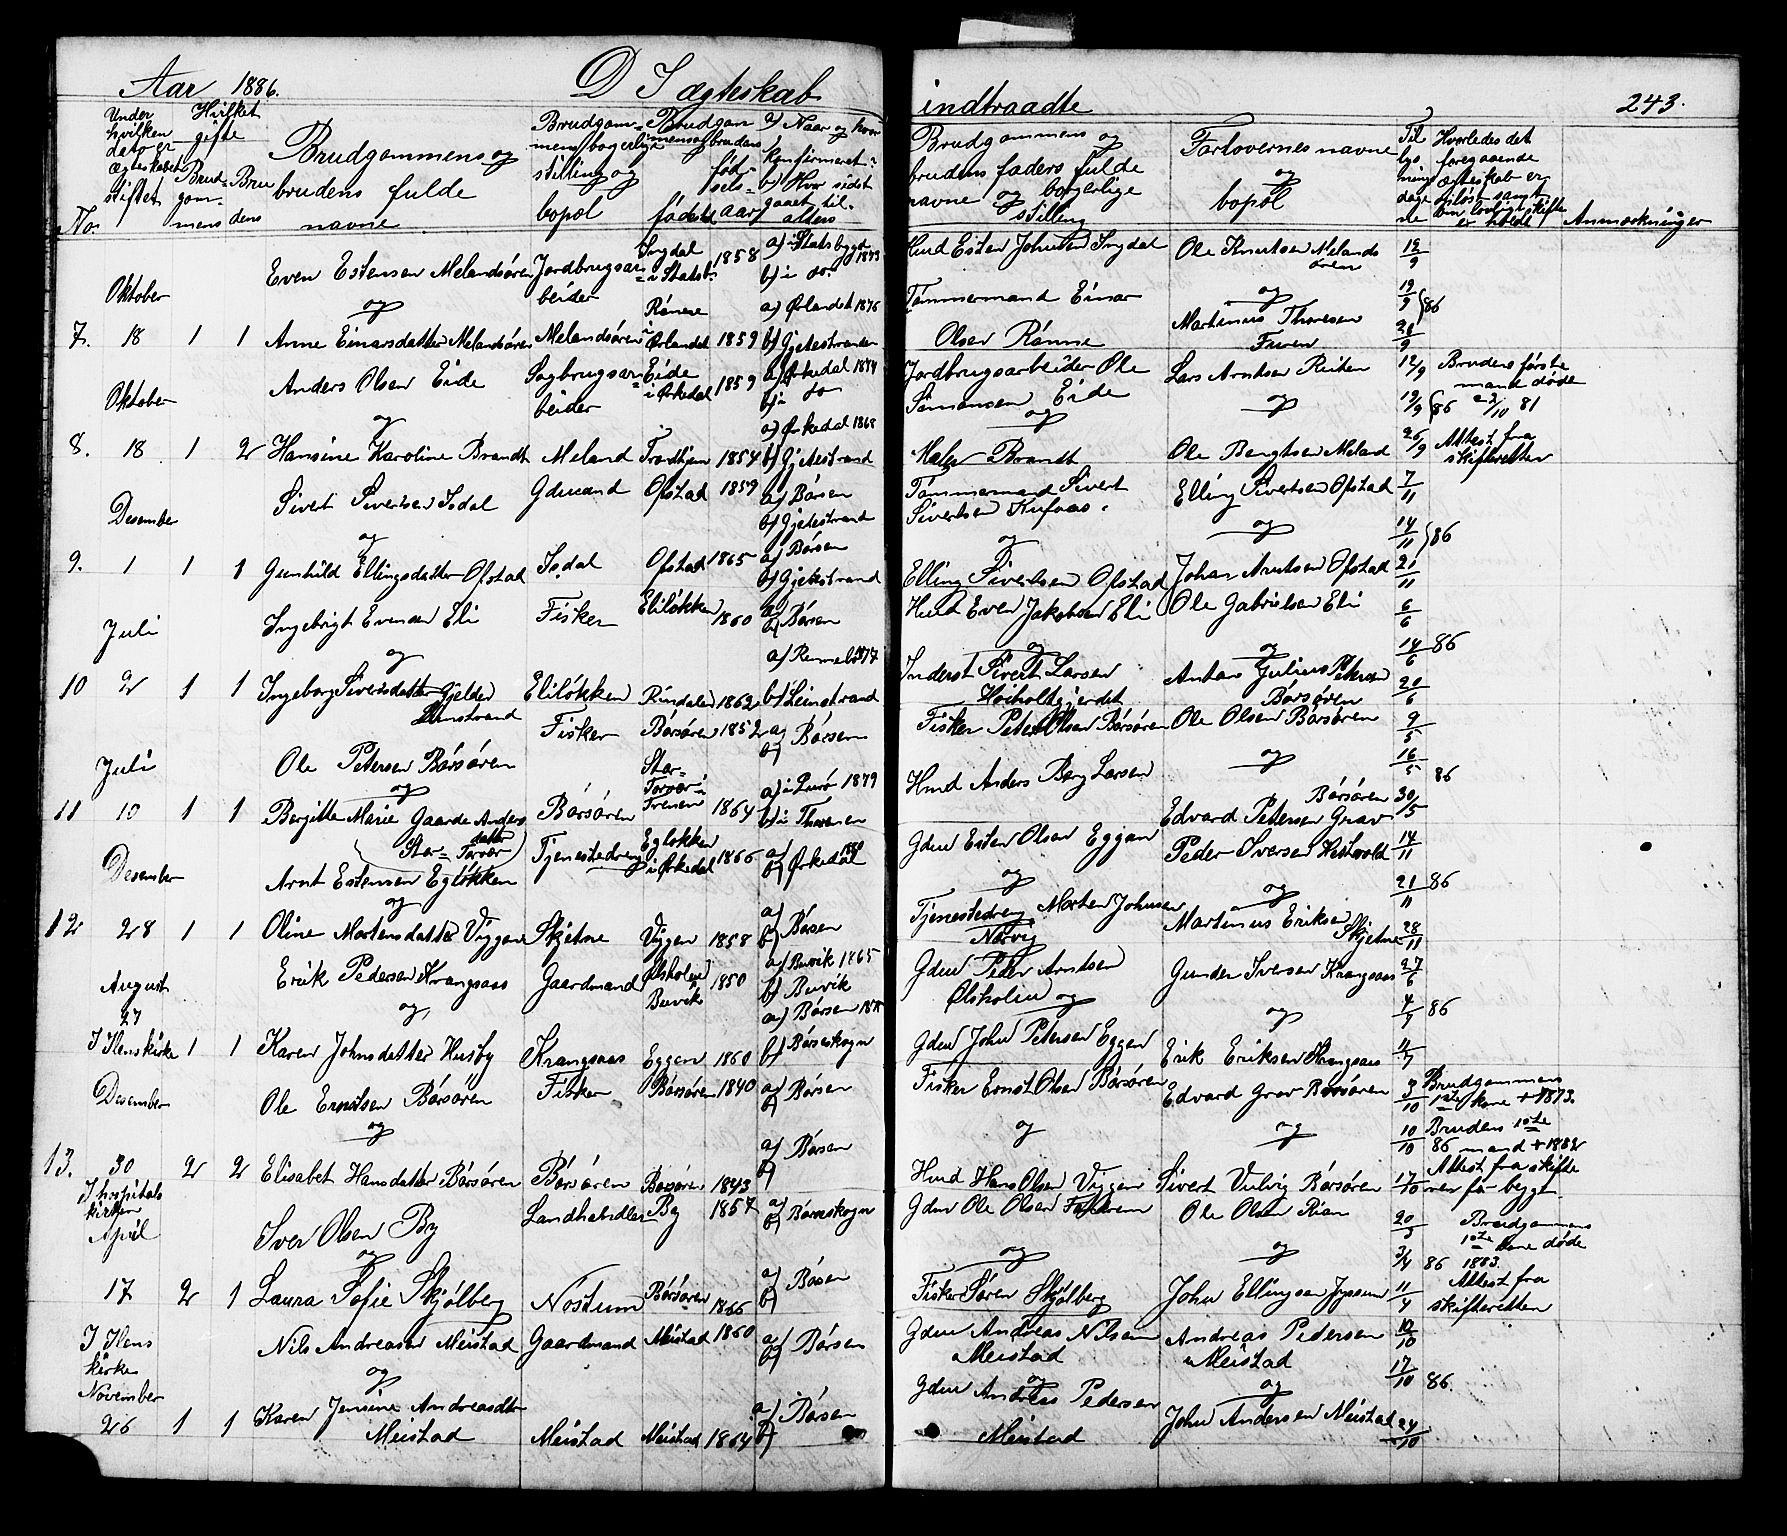 Aar 1886. D I ægteskab indtraadte 243.
No.
Under hvilken dato er ægteskabet stiftet
Hvilket gifte
Brudgommens
Brudens
Brudgommens og
brudens fulde
navne
Brudgommens borgerlige
stilling og
bopæl
Brudgommens og brudens
fødested
fødselsaar
a) Naar og hvor
konfirmeret
b) Hvor sidst
gaaet til
alters
Brudgommens og
brudens faders fulde
navne og borgerlige
stilling
Forlovernes navne
og
bopæl
Tillysningsdagene
Hvorledes det
foregaaende
ægteskab er
opløst samt
om lovligt skifte
er holdt
Anmærkninger
Oktober
7. 18 1 1
Even Estensen Melandsøren
og
Anne Einarsdatter Melandsøren
Jordbrugsarbeider
Melandsøren
Ingdal
i Statsb.
1858
Rønne
i
Ørlandet 1859
a) i Statsbygd 1873
b) i do
a) Ørlandet 1876
b) Gjetestranden
Hmd Esten Johnsen Ingdal
Tømmermand Einar
Olsen Rønne
Ole Knutsen Melandsøren
og
Martinus Thoresen
Furen
12/9
19/9 86
21/9
Oktober
8. 18 1 2
Anders Olsen Eide
og
Hansine Karoline Brandt
Sagbrugsarbeider
Meland
Eide
i Ørkedal 1859
Trondhjem 1854
a) Ørkedal 1874
b) i do
a) Ørkedal 1868
b) Gjetestrand
Jordbrugsarbeider Ole
Simonsen Eide
og
Brandt
Lars Arntsen Reiten
og
Ole Bengtsen Meland
12/9
19/9 86
26/9
Brudens første
mand døde
2/10 81
Attest fra
skifteretten
Desember
9. 1 1 1
Sivert Sivertsen Isdal
og
Gunhild Ellingsdatter Ofstad
Gdmand
Isdal
Ofstad 1859
Ofstad 1865
a) Børsen
b) Gjetestrand
a) Børsen
b) Gjetestrand
Tømmermand Sivert
Sivertsen Kufaas
og
Elling Sivertsen Ofstad
Elling Sivertsen Ofstad
og
Johan Arntsen Ofstad
7/11
14/11 86
21/11
Juli
10 2 1 1
Ingebrigt Evensen Eli
og
Ingeborg Sivertsdatter Gjelder
Leinstrand
Fisker
Eliløkken
Eliløkken 1860
Rindalen 1862
a)
b) Børsen
a) Rennebo 1877
b) Leinstrand
Hmd Even Jakobsen Eli
og
Inderst Sivert Larsen
Høiholtgjerdet
Ole Gabrielsen Eli
og
Anton Julius Petersen
Børsøren
6/6
14/6 86
20/6
Juli
11 10 1 1
Ole Petersen Børsøren
og
Bergitte Marie Gaarde Andersdatter
(Stor-Torvær)
Fisker
Børsøren
Børsøren 1852
Stor-Torvær i
Trenen 1864
a)
b) Børsen
a) i Lurø 1879
b) i Thrænen
Fisker Peter Olsen Børsøren
Hmd Anders Berg Larsen
Ole Olsen Børsøren
og
Børsøren
Edvard Petersen Grav
9/5
16/5 86
30/5
Desember
12 28 1 1
Arnt Estensen Egløkken
og
Oline Mortensdatter Viggen
Tjenestedreng
Skjetne
Egløkken
i Ørkedal 1866
Viggen 1858
a)
b) Ørkedal
a)
b) Børsen
Gdm Esten Olsen Eggan
og
Tjenestedreng Morten Johnsen
Norvig
Peder Iversen Hestvold
og
Martinus Eriksen
Skjetne
14/11
21/11 86
28/11
August
27
I Ilens kirke 1 1
Erik Pedersen Krangsaas
og
Karen Johnsdatter Husby
Gaardmand
Krangsaas
Ølsholm
Buvik 1850
Eggen 1860
a) Buvik 1865
b) Buvik
a) Børsen 1875
b) Børseskogn
Gdm Peder Arntsen
Ølsholm og
Gdm John Petersen Eggen
Gunder Iversen Krangsaas
og
Erik Eriksen Krangsaas
27/6
4/7 86
11/7
Desember
13. 30 2 2
Ole Ernstsen Børsøren
og
Elisabet Hansdatter Børsøren
Fisker
Børsøren
Børsøren 1840
Børsøren 1843
a)
b) Børsen
a)
b) Børsen
Fisker Ernst Olsen Børsøren
og
Hmd Hans Olsen Viggen
Edvard Grav Børsøren
og
Sivert Vulvig Børsøren
3/10
10/10 86
17/10
Brudgommens
1ste kone + 1873.
Brudens 1ste
mand + 1882
Attest fra skifte
I hospitalskirken
April
17 2 1
Iver Olsen By
og
Laura Sofie Skjølberg
Landhandler
Nostum
By 1857
Børsøren 1866
a)
b) Børseskogn
a)
b) Børsen
Gdm Ole Olsen
og
Fisker Søren Skjølberg
Ole Olsen Rian
og
John Ellingsen
20/3
3/4 86
11/4
Brudgommens
1ste kone døde
1883.
Attest fra
skifteretten
I Ilens
kirke
November
26 1 1
Nils Andreasen Meistad
og
Karen Jensine Andreasdtr
Meistad
Gaardmand
Meistad
Meistad 1860
Meistad 1864
a)
b) Børsen
a)
b) Børsen
Gdm Andreas Nilsen
Meistad
og
Gdm Andreas Pedersen
Meistad
Andreas Pedersen
Meistad
og
John Andersen Meistad
10/10
17/10 86.
24/10